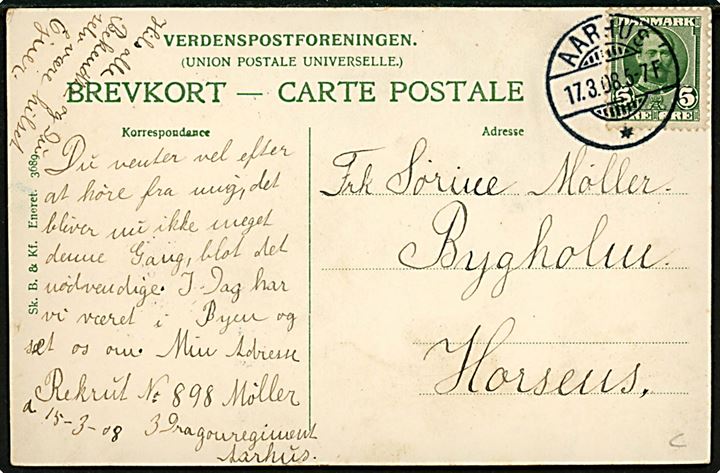 VERDENSPOSTFORENINGEN.
(UNION POSTALE UNIVERSELLE.)
BREVKORT — CARTE POSTALE
Korrespondance
Adresse
DANMARK
5 5
ØRE ØRE
AARHUS
17.3.08.5-7 F
Sk. B. & Kf. Eneret. 3689
Hils alle
Bekendte og Du
selv være hilset
Ejner
Du venter vel efter
at høre fra mig, det
bliver nu ikke meget
denne Gang, blot det
nødvendige. I-Dag har
vi været i Byen og
set os om. Min Adresse
Rekrut No 898 Møller
d 15-3-08 3 Dragonregiment
Aarhus.
Frk Sørine Møller.
Bygholm.
Horsens,
c